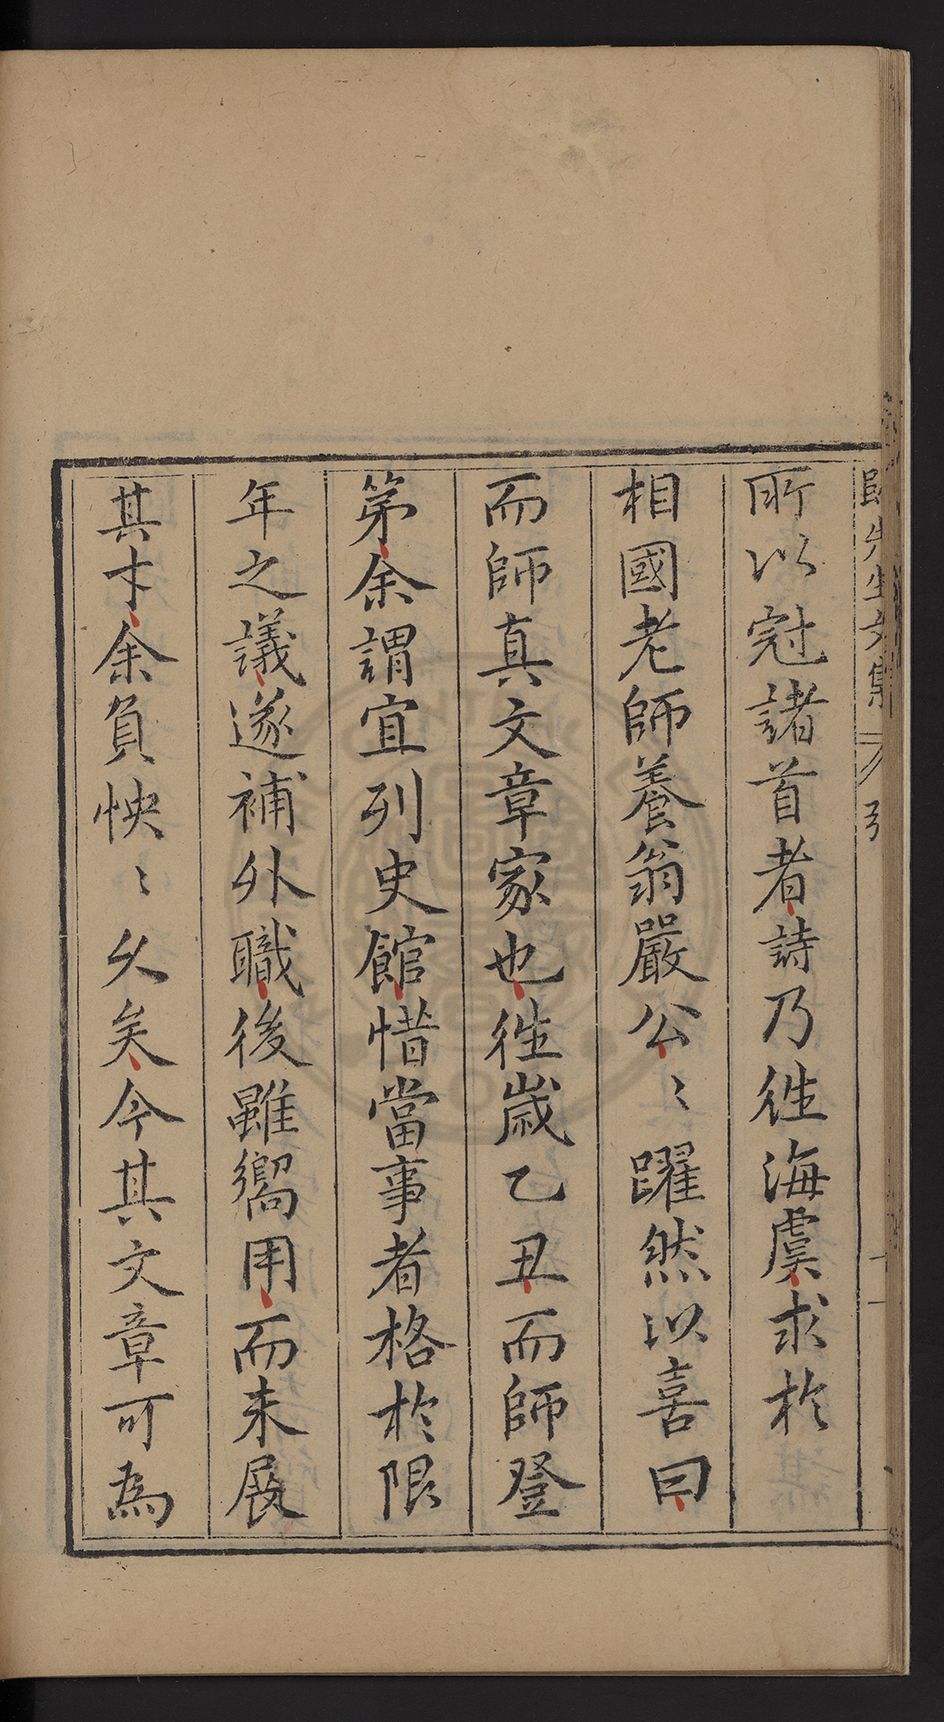 所以冠諸首者詩乃徃海虞求於
相國老師養翁嚴公〻躍然以喜曰
而師真文章家也徃歲乙丑而師登
第余謂宜列史館惜當事者格於限
年之議遂補外職後雖嚮用而未展
其才余負怏〻久矣今其文章可為
歸先生文集 引